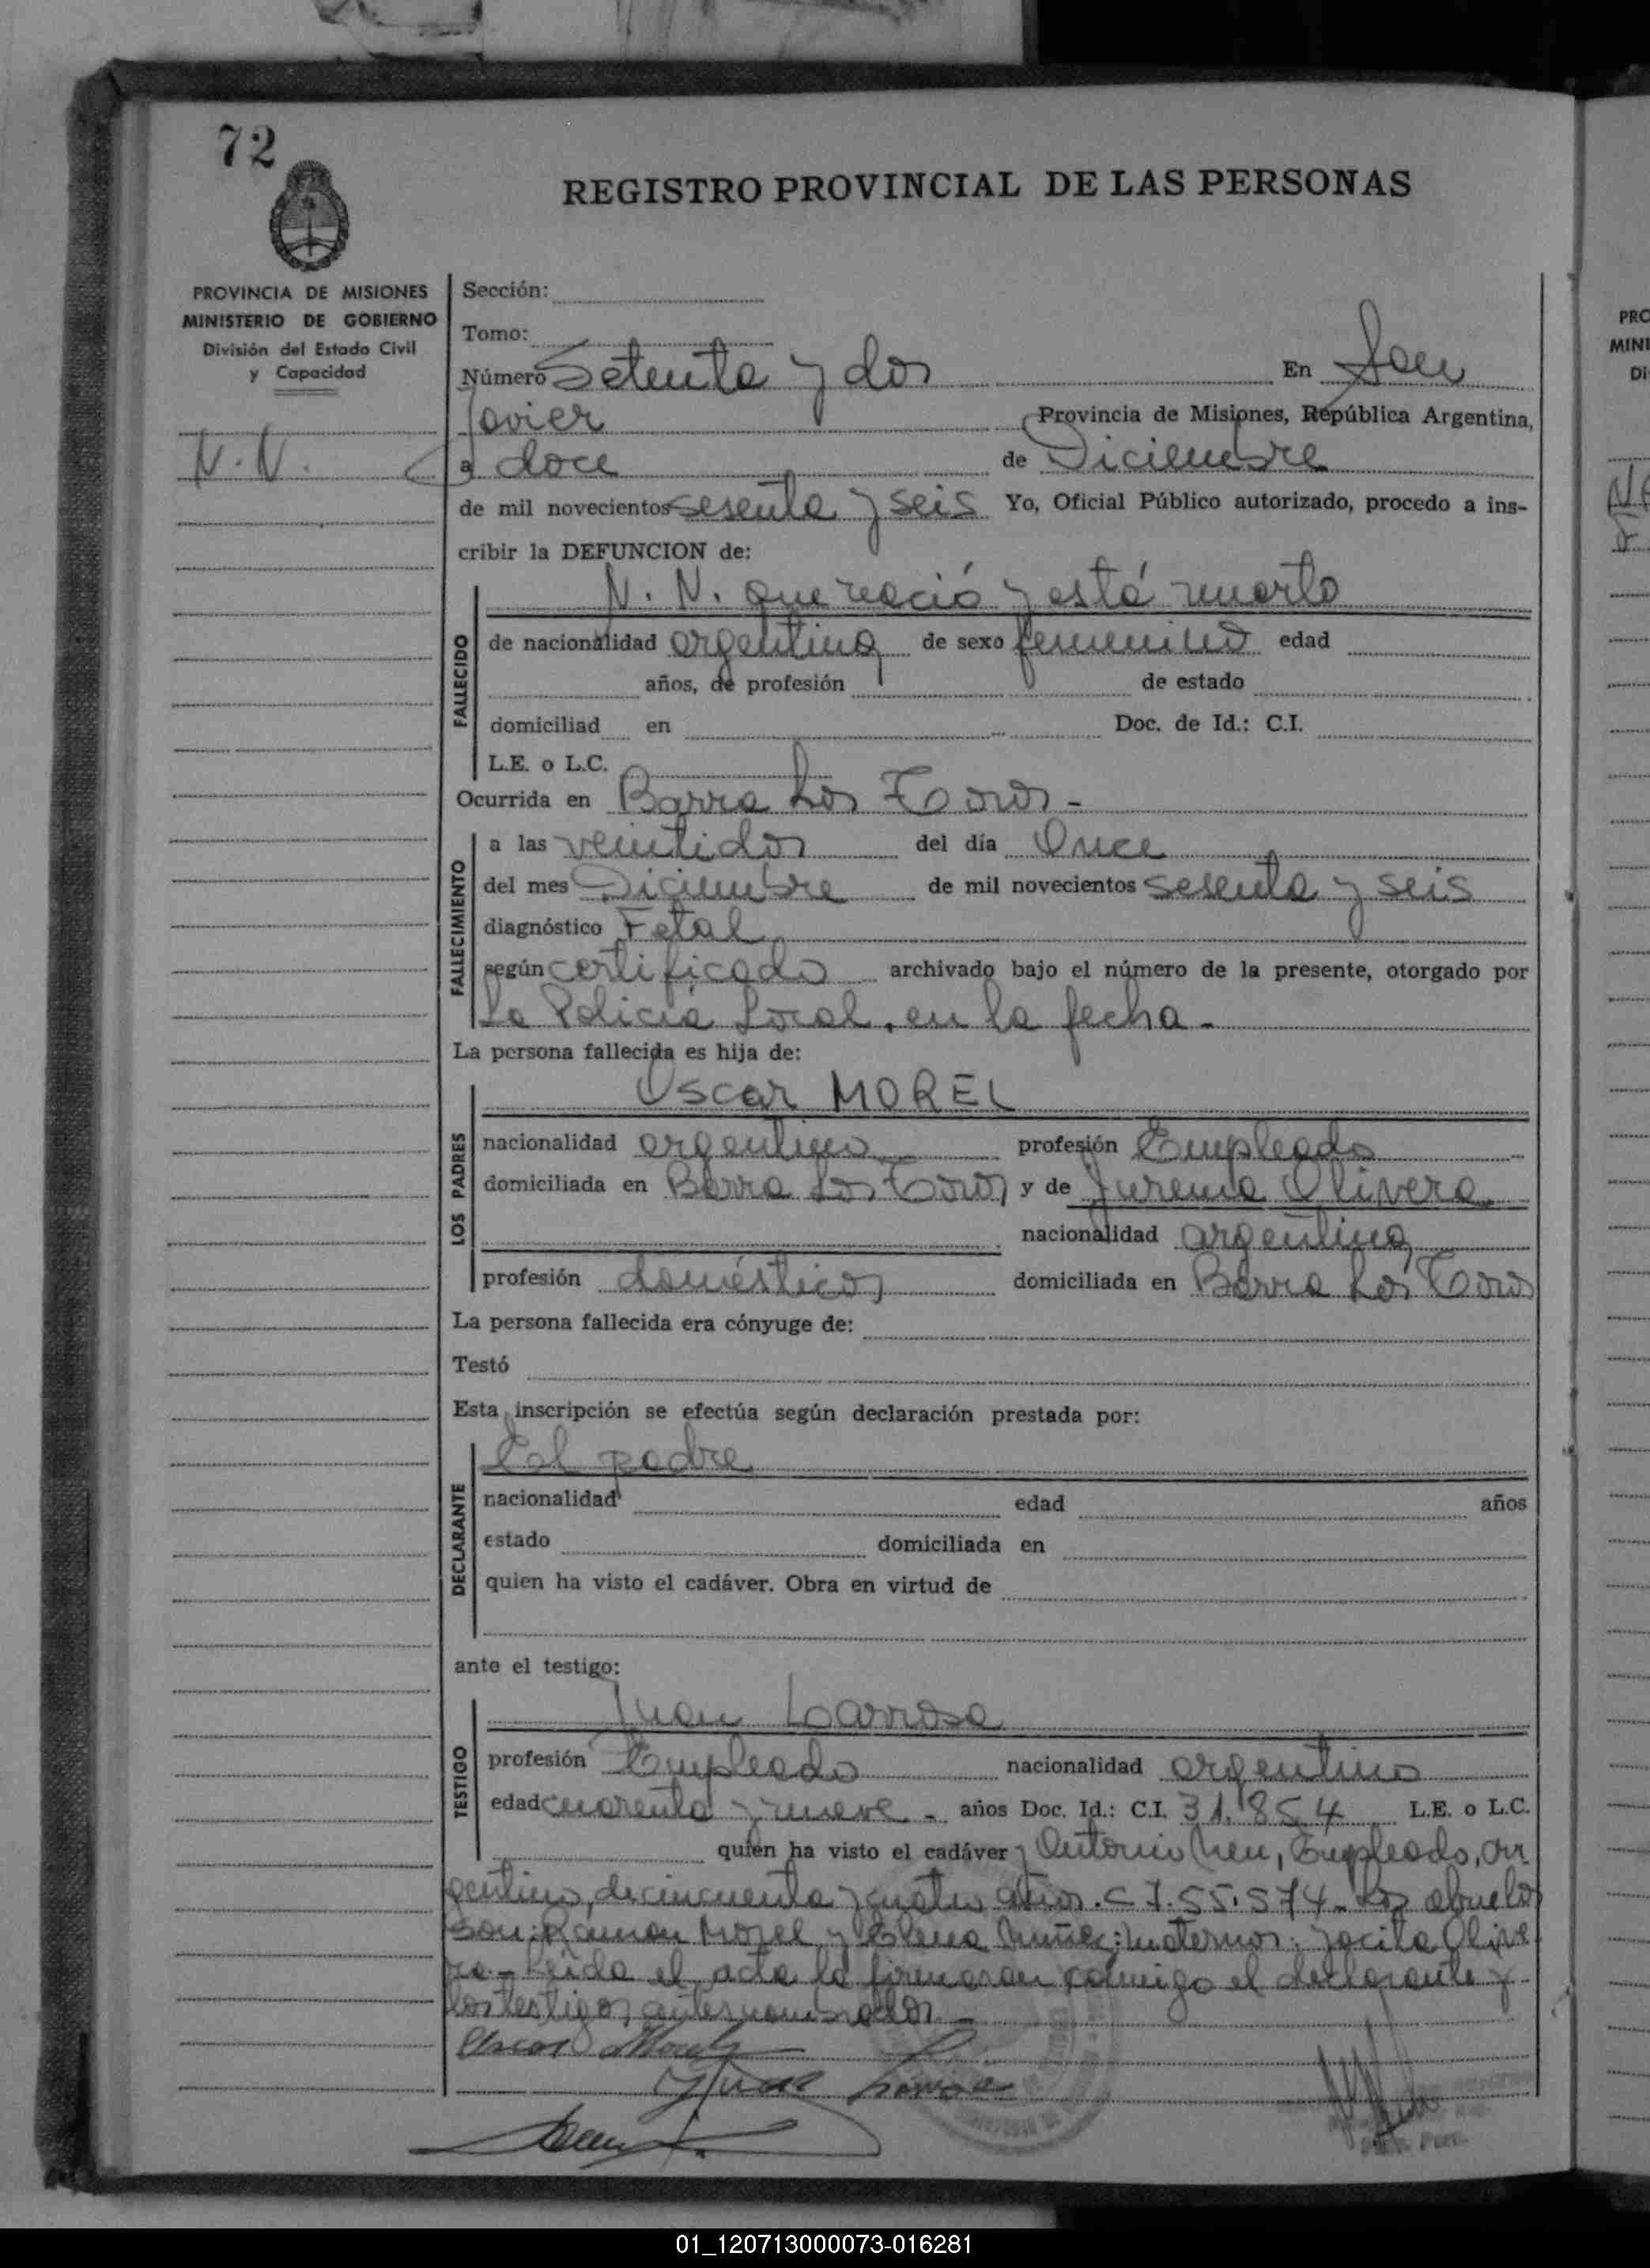 72
REGISTRO PROVINCIAL DE LAS PERSONAS
PROVINCIA DE MISIONES
MINISTERIO DE GOBIERNO
División del Estado Civil
y Capacidad
N.N.
Sección:
Tomo:
Número Setenta y dos En San
Javier Provincia de Misiones, República Argentina,
a doce de Diciembre
de mil novecientos sesenta y seis Yo, Oficial Público autorizado, procedo a ins-
cribir la DEFUNCION de:
N. N. que nació y está muerto
FALLECIDO
de nacionalidad argentina de sexo femenino edad
años, de profesión de estado
domiciliad en Doc. de Id.: C.I.
L.E. o L.C.
Ocurrida en Barra Los Toros -
FALLECIMIENTO
a las veintidos del día Once
del mes Diciembre de mil novecientos sesenta y seis
diagnóstico Fetal
según certificado archivado bajo el número de la presente, otorgado por
La Policía Local, en la fecha -
La persona fallecida es hija de:
LOS PADRES
Oscar MOREL
nacionalidad argentino profesión Empleado
domiciliada en Barra Los Toros y de Jurema Olivera
nacionalidad argentina
profesión domésticos domiciliada en Barra Los Toros
La persona fallecida era cónyuge de:
Testó
Esta inscripción se efectúa según declaración prestada por:
DECLARANTE
El padre
nacionalidad edad años
estado domiciliada en
quien ha visto el cadáver. Obra en virtud de
ante el testigo:
TESTIGO
Juan Larrosa
profesión Empleado nacionalidad argentino
edad cuarenta y nueve - años Doc. Id.: C.I. 31.854 L.E. o L.C.
quien ha visto el cadáver y Antonio Empleado, ar
gentino, de cincuenta y cuatro años. C I. 55.574 - Los abuelos
son: Ramon Morel y Elena Nuñez; Maternos: Jacita Olive
ra - Leida el acta la firmaran conmigo el declarante y
los testigos antes nombrados -
Oscar Morel
Juan Larrosa
01_120713000073-016281